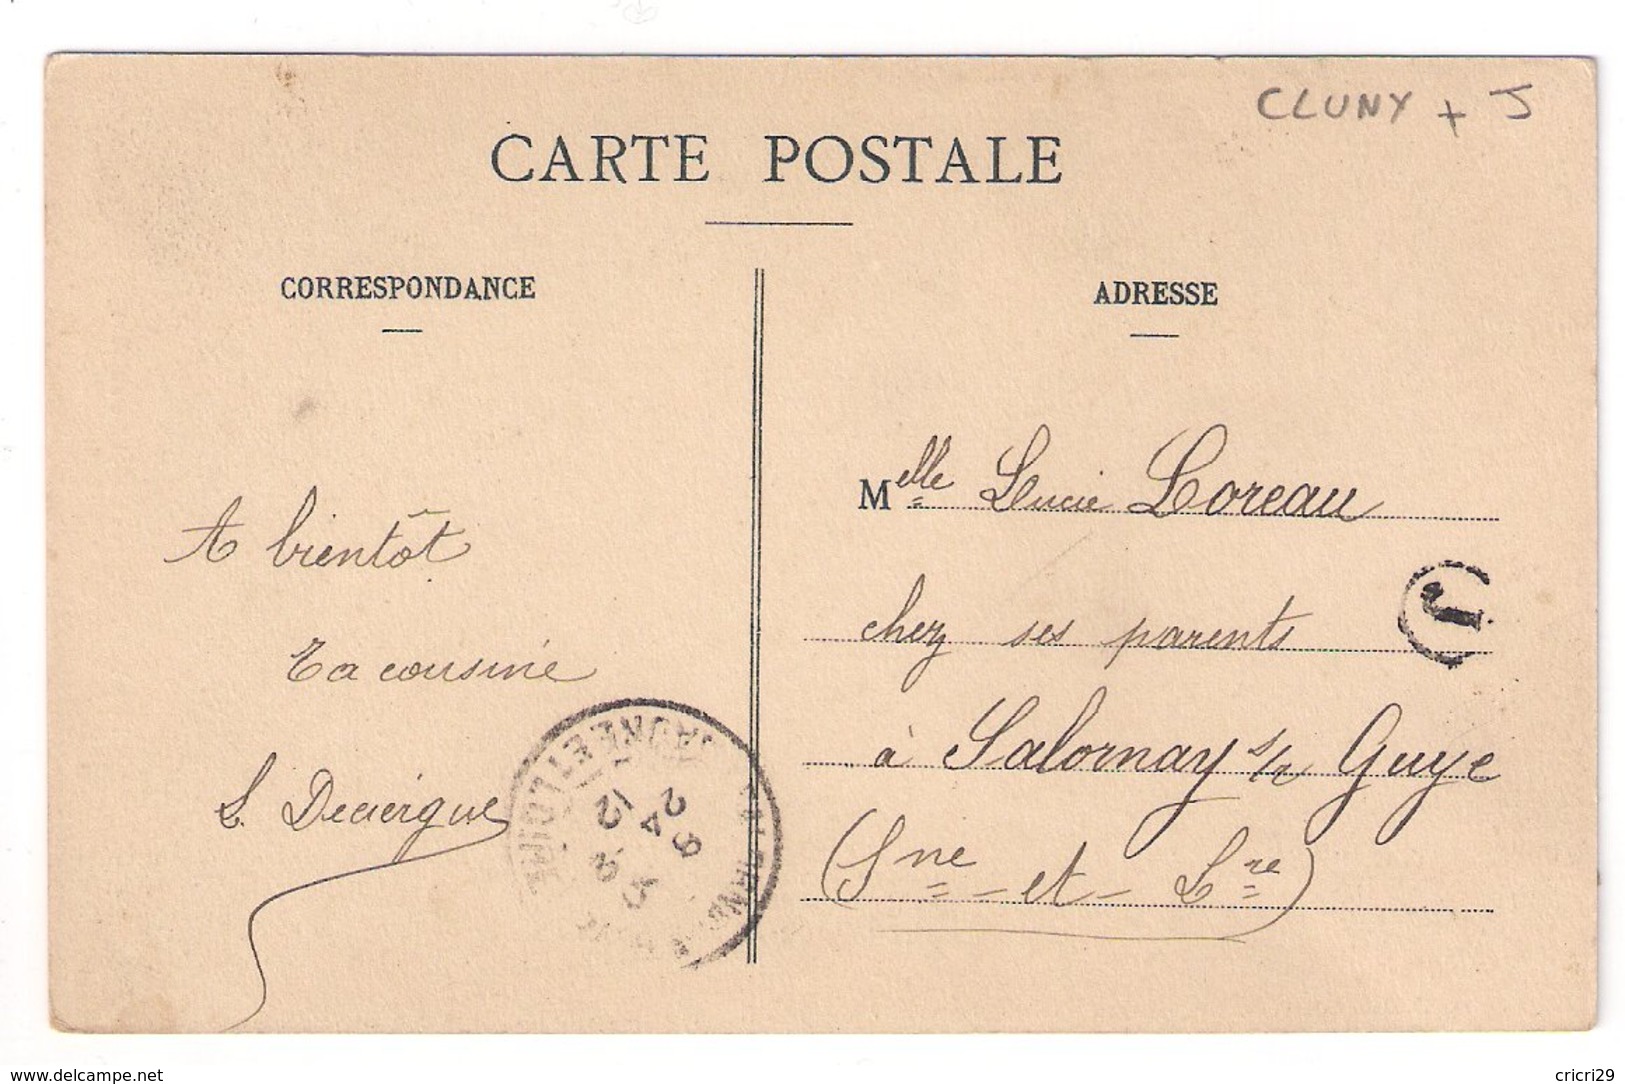 CLUNY + J
CARTE POSTALE
CORRESPONDANCE
ADRESSE
A bientôt
Ta cousine
Melle Lucie Loreau
chez ses parents
J
à Salornay s/r Guye
(Sne et Lre)
SAONE ET LOIRE
24
www.delcampe.net
cricri29